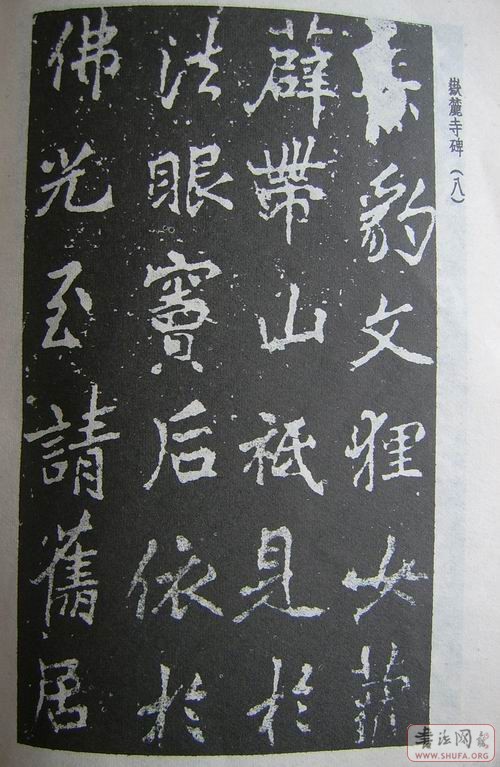 嶽麓寺碑（八）
赤豹文狸女蘿
薜帶山祇見於
法眼竇后依於
佛光至請舊居
書法网
WWW.SHUFA.ORG